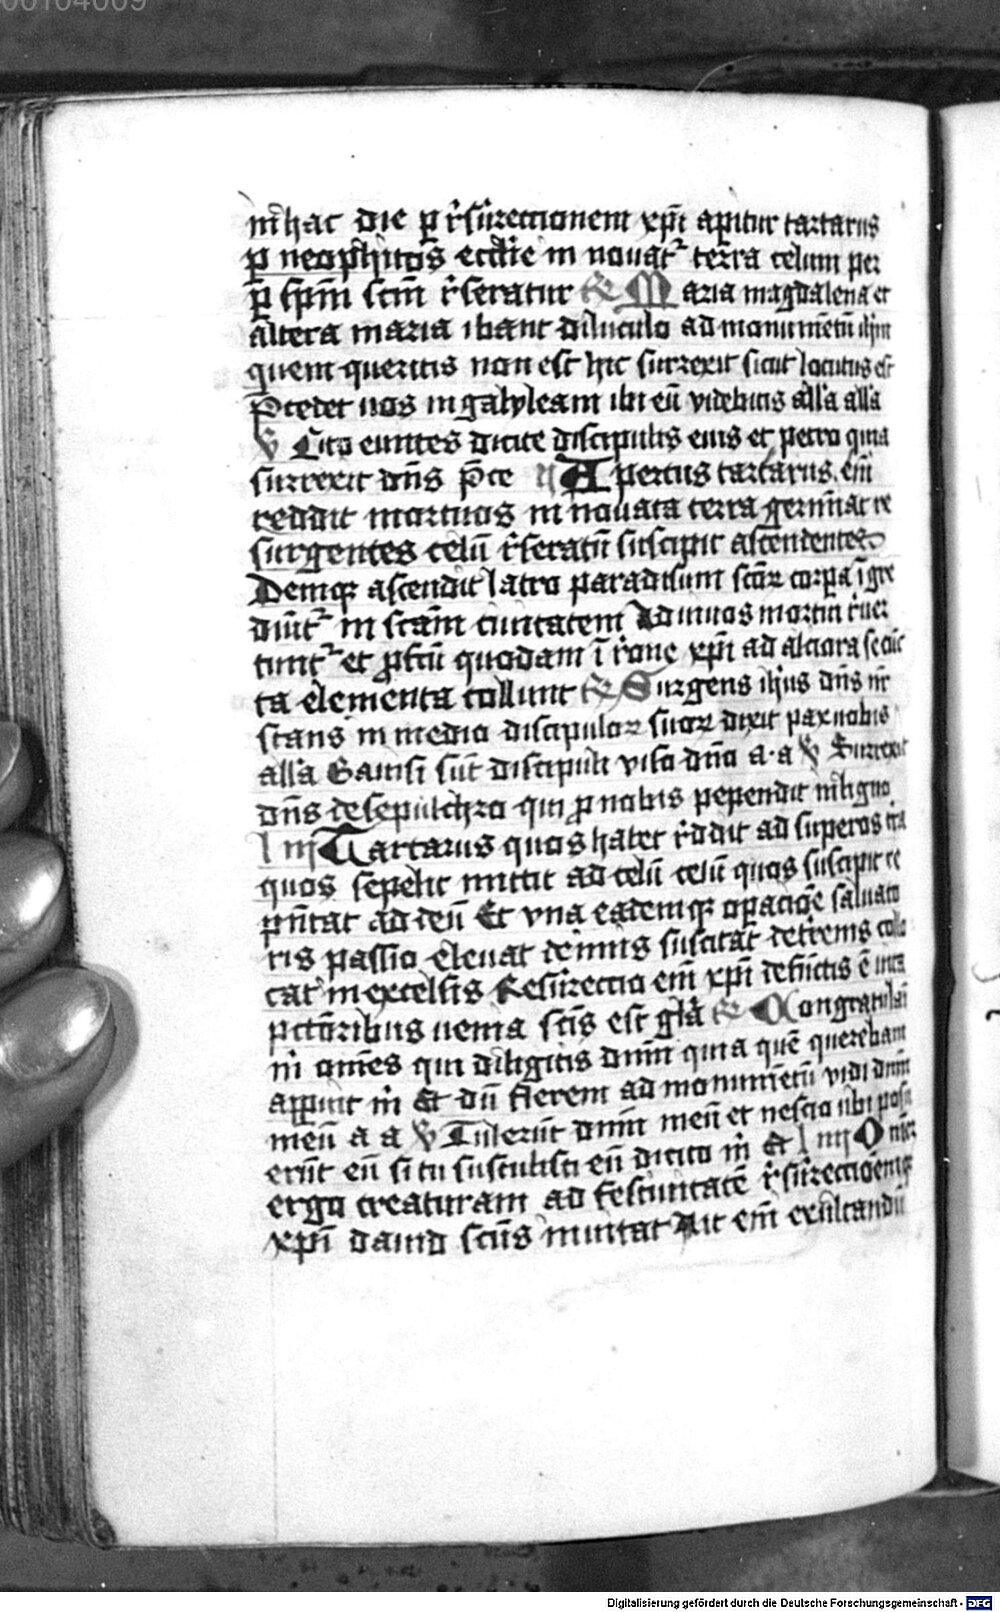 00104009
in hac die p̲ r̄surrectionem xp̄i ap̲itur tartarus
p̲ neophitos eccl̄ie innouat᷑ terra celum per
p̲ sp̄m sc̄m r̄seratur R̵ Maria magdalena et
altera maria ibant diluculo ad monumētū ih̄m
quem queritis non est hic surrexit sicut locutus est
P̄cedet uos in galyleam ibi eū videbitis all'a all'a
V̵ Cito euntes dicite discipulis eius et petro quia
surrexit dn̄s p̄ce ii Apertus tartarus. em̄
reddit mortuos innouata terra germīat re
surgentes celū r̄seratū suscipit ascendentes
Demqꝫ ascendit latro paradisum sc̄oꝝ corpa īgre
diūt᷑ in sc̄am ciuitatem Ad uiuos mortui r̄uer
tunt᷑ et ꝓfcū quodam ī r̄one xp̄i ad alciora
ta elementa tollunt R̵ Surgens ih̄us dn̄s nr̄
stans in medio discipuloꝝ suoꝝ dixit pax uobis
all'a Gauisi sūt discipuli viso dn̄o a·a V̵ Surrexit
dn̄s de sepulchro qui ꝓ nobis pependit in ligno
l iij Tartarus quos habet r̄ddit ad superos t'ra
quos sepelit mittit ad celū celū quos suscipit re
p̄n̄tat ad deū Et vna eademqꝫ op̲acioē saluato
ris passio eleuat de īmis suscitat de t'renis collo
cat in excelsis Resurrectio em̄ xp̄i defūctis ē
pctoribus uenia sc̄is est gl'a R̵ Congratulai
m̄ om̄es qui diligitis dn̄m quia quē querebam
apparuit m̄ Et dū flerem ad monumētū vidi dn̄m
meū a a V̵ Tulerūt dn̄m meū et nescio ubi posu
erūt eū si tu sustulisti eū dicito m̄ Et l iiij Om̄ē
ergo creaturam ad festiuitatē r̄surrectiōemqꝫ
xp̄i dauid sc̄us inuitat Ait em̄ exultandū
Digitalisierung gefördert durch die Deutsche Forschungsgemeinschaft - DFG